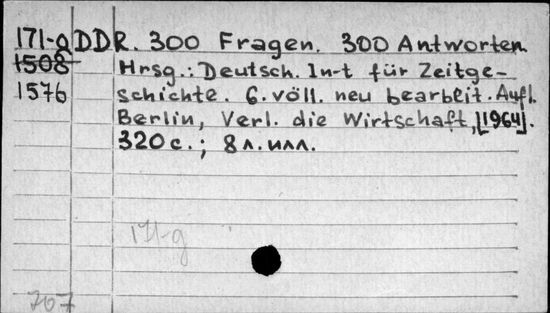 171-g DDR. 300 Fragen. 300 Antworten
1508 Hrsg.: Deutsch. In-t für Zeitge-
1576 schichte. 6. völl. neu bearbeit. Aufl.
Berlin, Verl. die Wirtschaft, [1964].
320 с.; 8 л. илл.
171-g
707